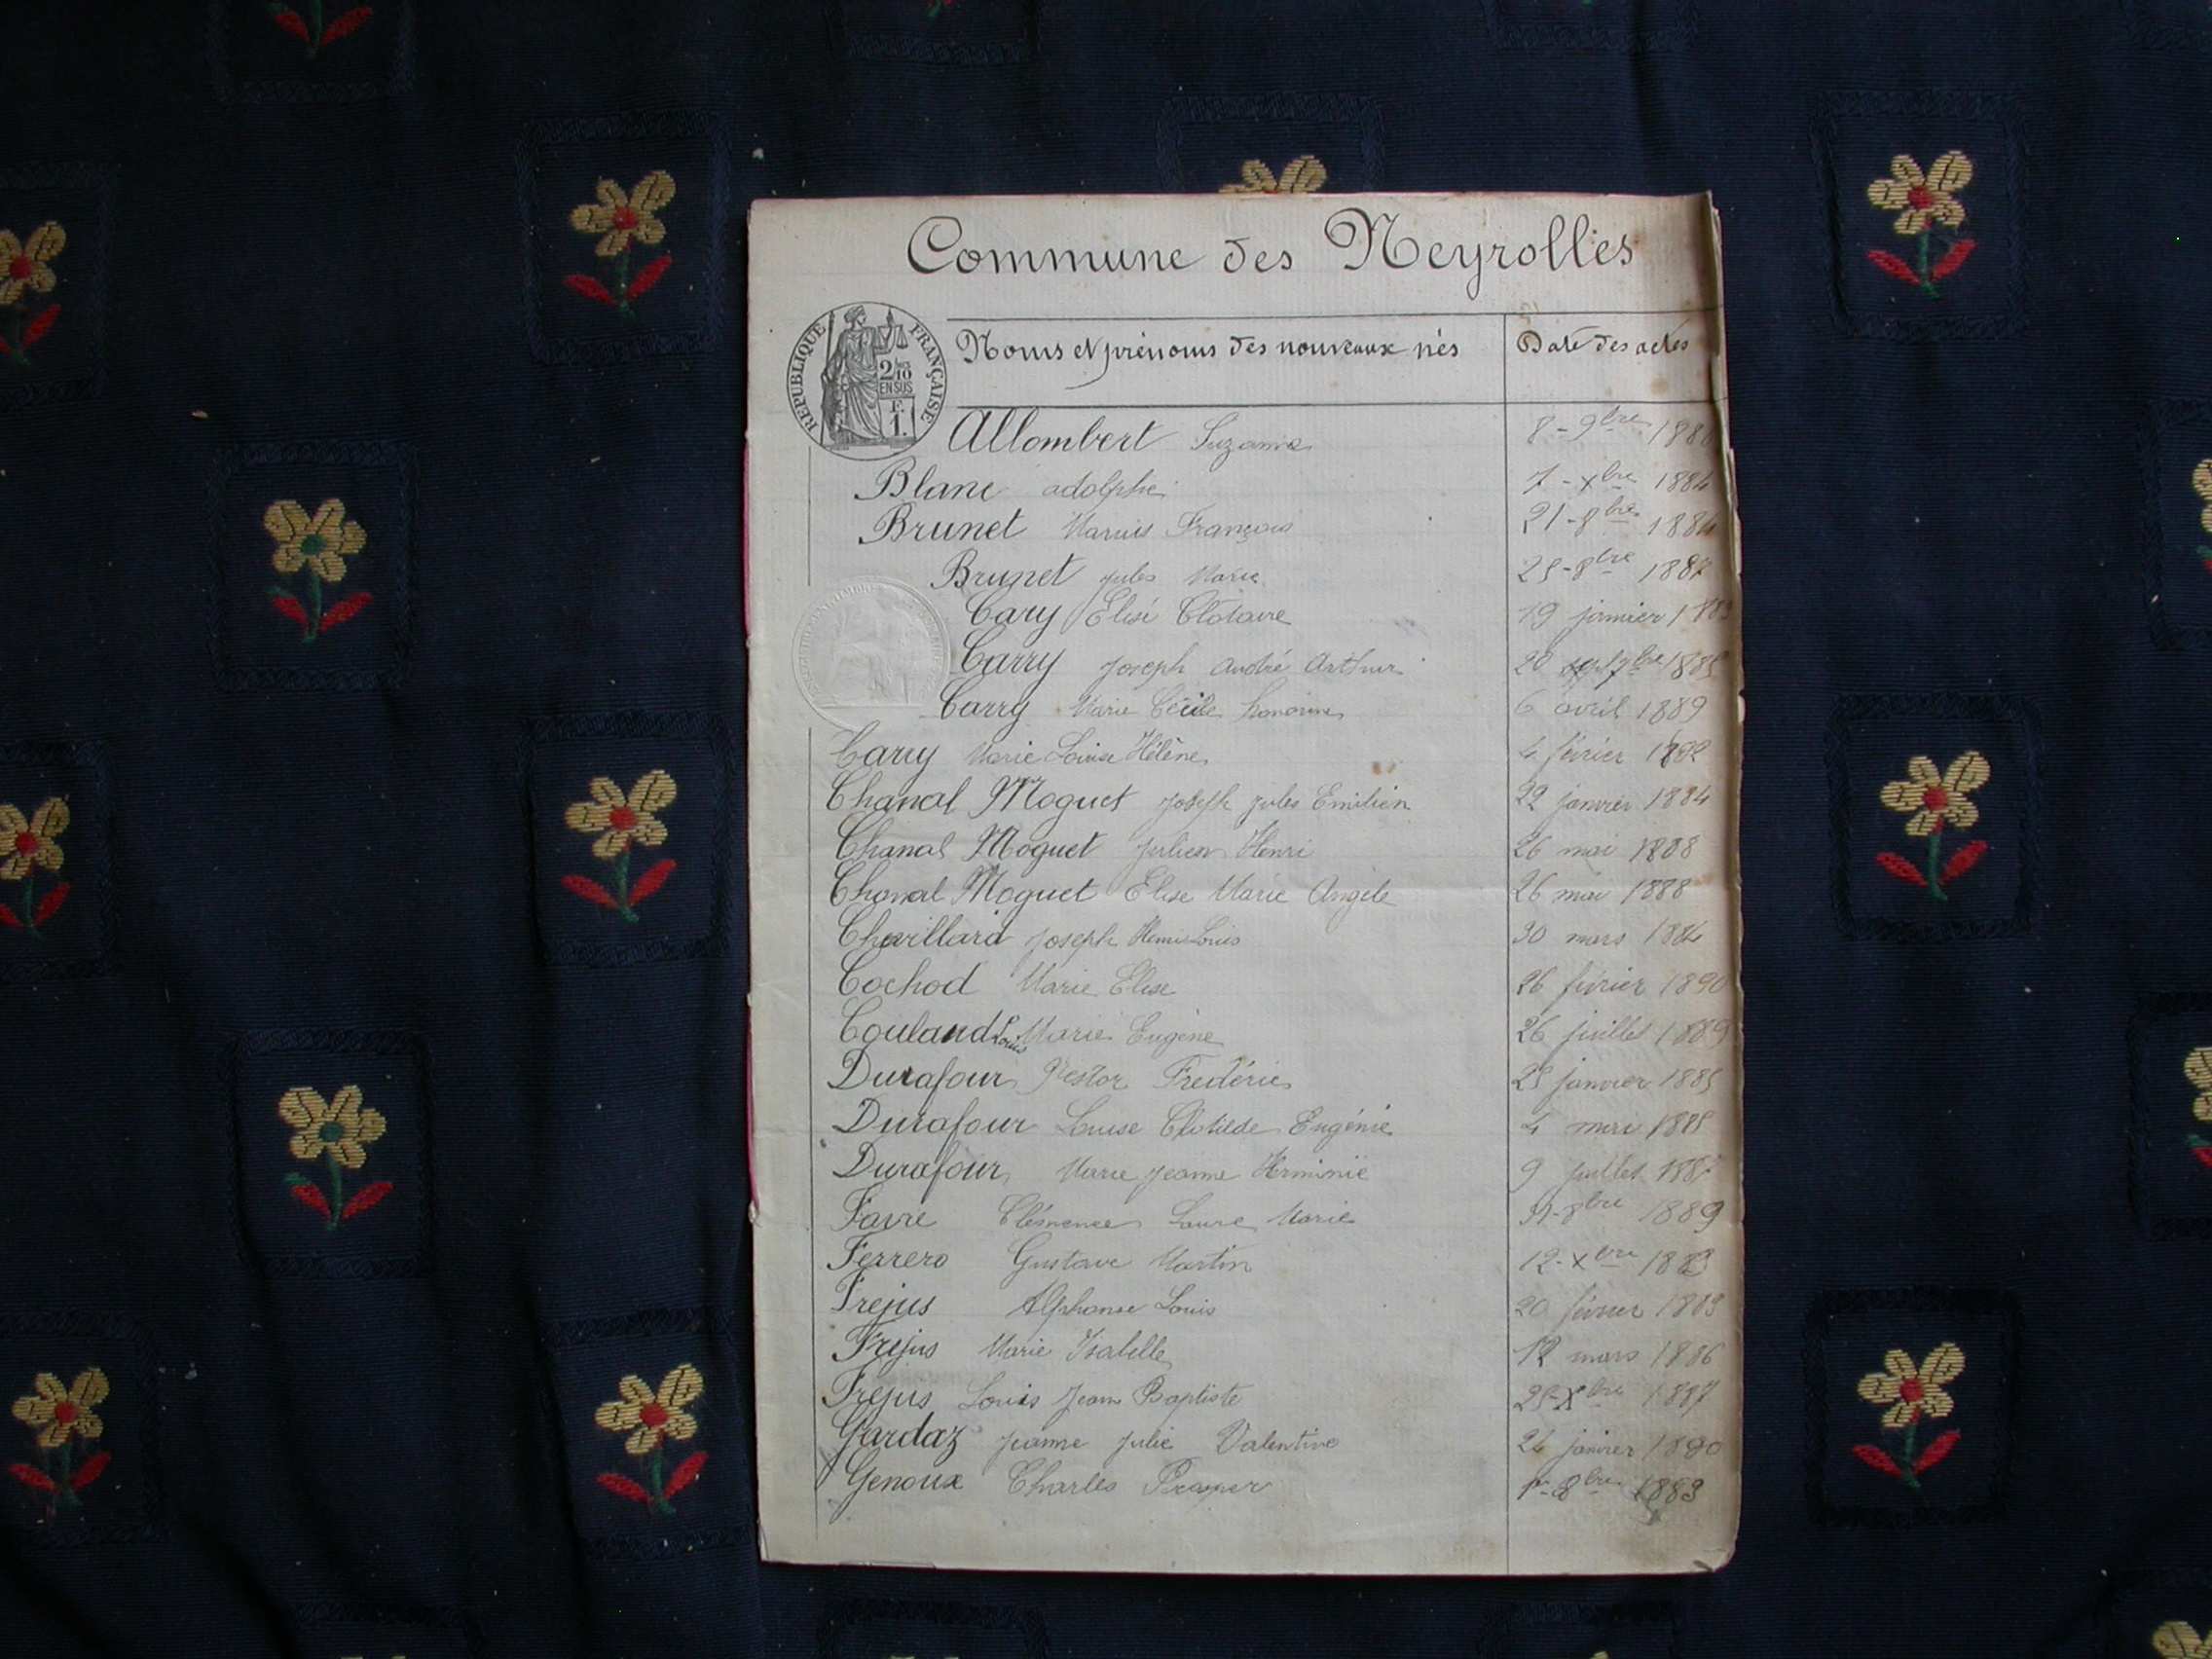 Commune des Neyrolles
RÉPUBLIQUE FRANÇAISE
2/10
EN SUS
F.
1.
Noms et prénoms des nouveaux nés Date des actes
Allombert Suzanne 8-9bre
Blanc adolphe 7-xbre 1884
Brunet Marius François 21-8bre 1884
Brunet jules Marie 25-8bre 1887
Cary Élisé Clotaire 19 janvier
Carry joseph andré arthur 20 1885
Carry Marie Cécile honorine 6 avril 1889
Carry Marie Louise Hélène 4 février
Chanal Moguet joseph jules Emilien 22 janvier 1884
Chanal Moguet julien Henri 26 mai 1888
Chanal Moguet Elise Marie Angèle 26 mai 1888
Chevillard joseph Henri Louis 30 mars 1884
Cochod Marie Elise 26 février 1890
Couland Louis Marie Eugène 26 juillet 1889
Durafour Nestor Fredéric 25 janvier 1885
Durafour Louise Clotilde Eugénie 4 mai 1885
Durafour Marie jeanne Herminie 9 juillet 1887
Favre Clémence Laure Marie 1889
Ferrero Gustave Martin 12-xbre 1883
Frejus Alphonse Louis 20 février
Frejus Marie Isabelle 12 mars 1886
Frejus Louis jean Baptiste 25-Xbre 1887
Gardaz jeanne julie Valentine 24 janvier 1890
Genoux Charles Prosper 1883